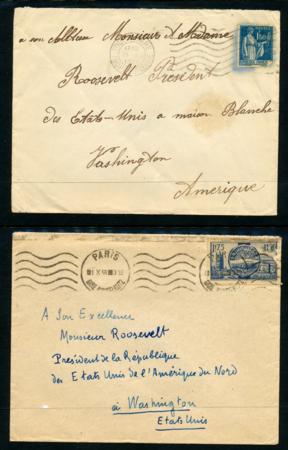 a son Altesse Monsieur et Madame
Roosevelt Président
des Etats-Unis a maison Blanche
Washington
Amerique
PARIS
1F75
A Son Excellence
Monsieur Roosevelt
Président de la République
des Etats Unis de l'Amérique du Nord
à Washington
Etats Unis